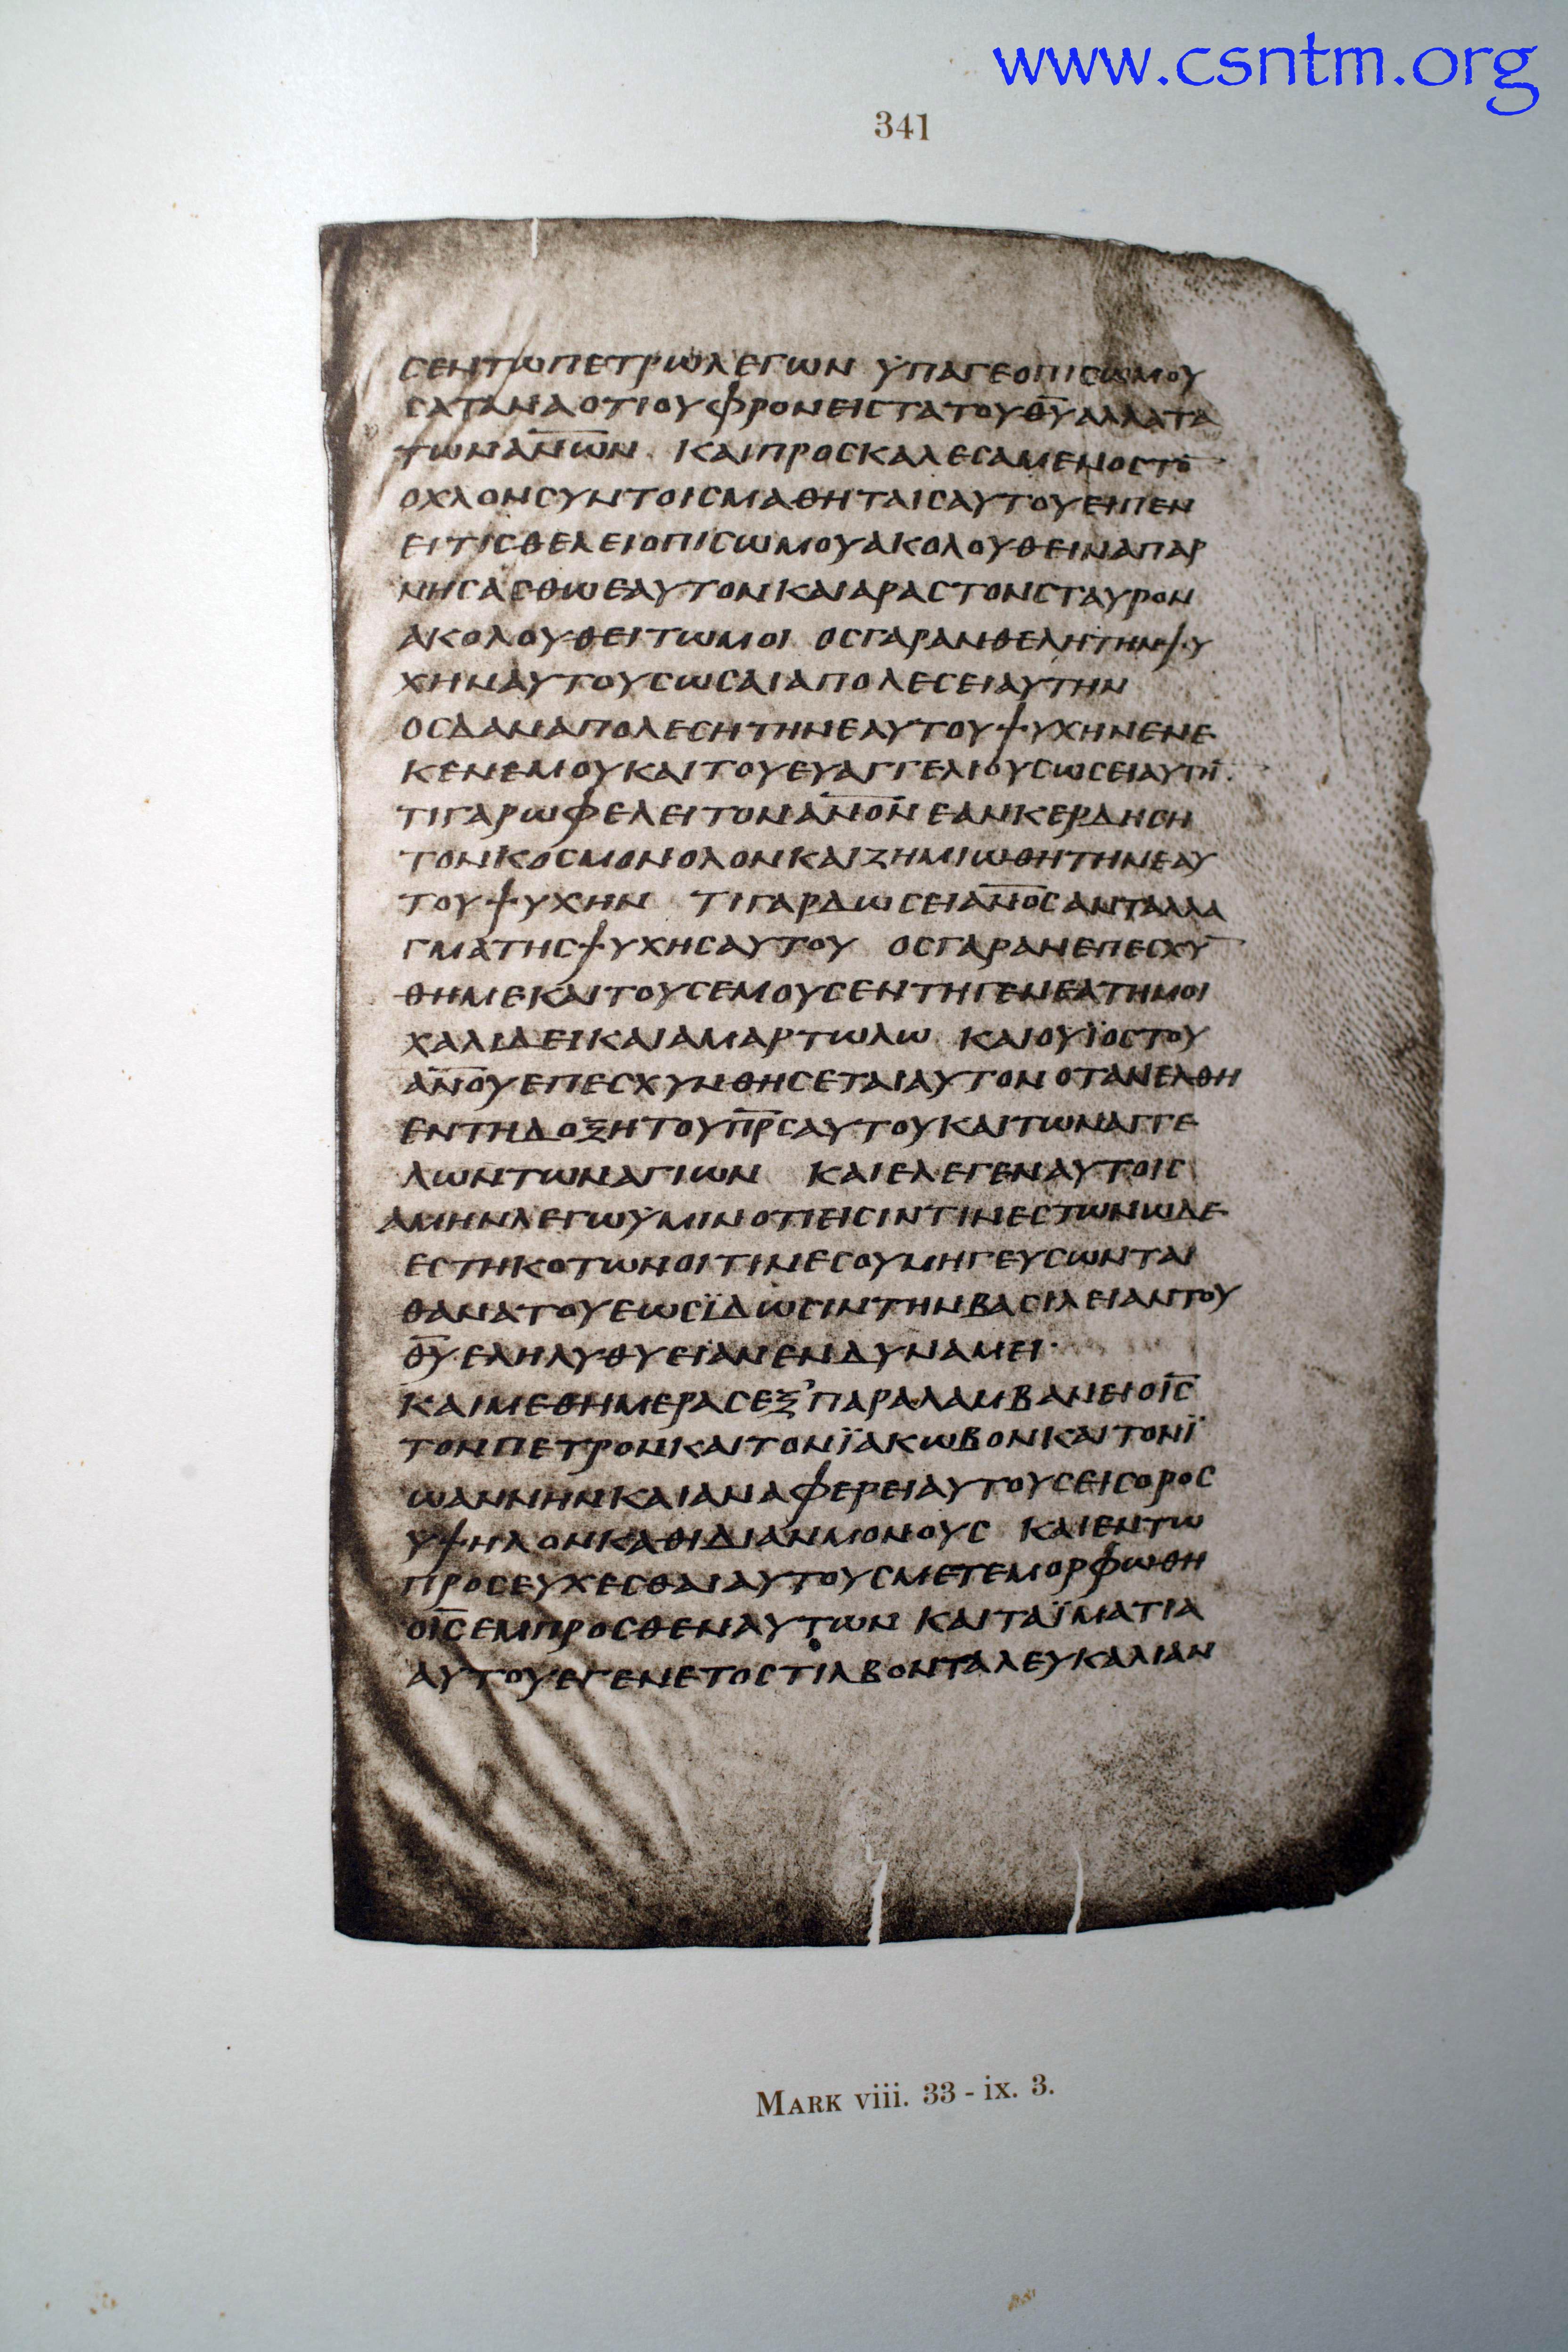 www.csntm.org
341
ϹΕΝΤΩΠΕΤΡΩΛΕΓΩΝ ΫΠΑΓΕΟΠΙϹΩΜΟΥ
ϹΑΤΑΝΑΟΤΙΟΥΦΡΟΝΕΙϹΤΑΤΟΥΘ̅Υ̅ΑΛΛΑΤΑ
ΤΩΝΑΝ̅Ω̅Ν̅ ΚΑΙΠΡΟϹΚΑΛΕϹΑΜΕΝΟϹΤΟ̅
ΟΧΛΟΝϹΥΝΤΟΙϹΜΑΘΗΤΑΙϹΑΥΤΟΥΕΙΠΕΝ
ΕΙΤΙϹΘΕΛΕΙΟΠΙϹΩΜΟΥΑΚΟΛΟΥΘΕΙΝΑΠΑΡ
ΝΗϹΑϹΘΩΕΑΥΤΟΝΚΑΙΑΡΑϹΤΟΝϹΤΑΥΡΟΝ
ΑΚΟΛΟΥΘΕΙΤΩΜΟΙ ΟϹΓΑΡΑΝΘΕΛΗΤΗΝΨΥ
ΧΗΝΑΥΤΟΥϹΩϹΑΙΑΠΟΛΕϹΕΙΑΥΤΗΝ
ΟϹΔΑΝΑΠΟΛΕϹΗΤΗΝΕΑΥΤΟΥΨΥΧΗΝΕΝΕ
ΚΕΝΕΜΟΥΚΑΙΤΟΥΕΥΑΓΓΕΛΙΟΥϹΩϹΕΙΑΥΤΗ̅
ΤΙΓΑΡΩΦΕΛΕΙΤΟΝΑΝ̅Ο̅Ν̅ΕΑΝΚΕΡΔΗϹΗ
ΤΟΝΚΟϹΜΟΝΟΛΟΝΚΑΙΖΗΜΙΩΘΗΤΗΝΕΑΥ
ΤΟΥΨΥΧΗΝ ΤΙΓΑΡΔΩϹΕΙΑΝ̅Ο̅Ϲ̅ΑΝΤΑΛΛΑ
ΓΜΑΤΗϹΨΥΧΗϹΑΥΤΟΥ ΟϹΓΑΡΑΝΕΠΕϹΧΥ̅
ΘΗΜΕΚΑΙΤΟΥϹΕΜΟΥϹΕΝΤΗΓΕΝΕΑΤΗΜΟΙ
ΧΑΛΙΔΕΙΚΑΙΑΜΑΡΤΩΛΩ ΚΑΙΟΥΪΟϹΤΟΥ
ΑΝ̅Ο̅Υ̅ΕΠΕϹΧΥΝΘΗϹΕΤΑΙΑΥΤΟΝΟΤΑΝΕΛΘΗ
ΕΝΤΗΔΟΞΗΤΟΥΠ̅Ρ̅Ϲ̅ΑΥΤΟΥΚΑΙΤΩΝΑΓΓΕ
ΛΩΝΤΩΝΑΓΙΩΝ ΚΑΙΕΛΕΓΕΝΑΥΤΟΙϹ
ΑΜΗΝΛΕΓΩΫΜΙΝΟΤΙΕΙϹΙΝΤΙΝΕϹΤΩΝΩΔΕ
ΕϹΤΗΚΟΤΩΝΟΙΤΙΝΕϹΟΥΜΗΓΕΥϹΩΝΤΑΙ
ΘΑΝΑΤΟΥΕΩϹΪΔΩϹΙΝΤΗΝΒΑϹΙΛΕΙΑΝΤΟΥ
Θ̅Υ̅ΕΛΗΛΥΘΥΕΙΑΝΕΝΔΥΝΑΜΕΙ·
ΚΑΙΜΕΘΗΜΕΡΑϹΕΞ’ΠΑΡΑΛΑΜΒΑΝΕΙΟΙ̅Ϲ̅
ΤΟΝΠΕΤΡΟΝΚΑΙΤΟΝΪΑΚΩΒΟΝΚΑΙΤΟΝΪ
ΩΑΝΝΗΝΚΑΙΑΝΑΦΕΡΕΙΑΥΤΟΥϹΕΙϹΟΡΟϹ
ΥΨΗΛΟΝΚΑΘΙΔΙΑΝΜΟΝΟΥϹ ΚΑΙΕΝΤΩ
ΠΡΟϹΕΥΧΕϹΘΑΙΑΥΤΟΥϹΜΕΤΕΜΟΡΦΩΘΗ
ΟΙ̅Ϲ̅ΕΜΠΡΟϹΘΕΝΑΥΤΩΝ ΚΑΙΤΑΪΜΑΤΙΑ
ΑΥΤΟΥΕΓΕΝΕΤΟϹΤΙΛΒΟΝΤΑΛΕΥΚΑΛΙΑΝ
MARK viii. 33 - ix. 3.